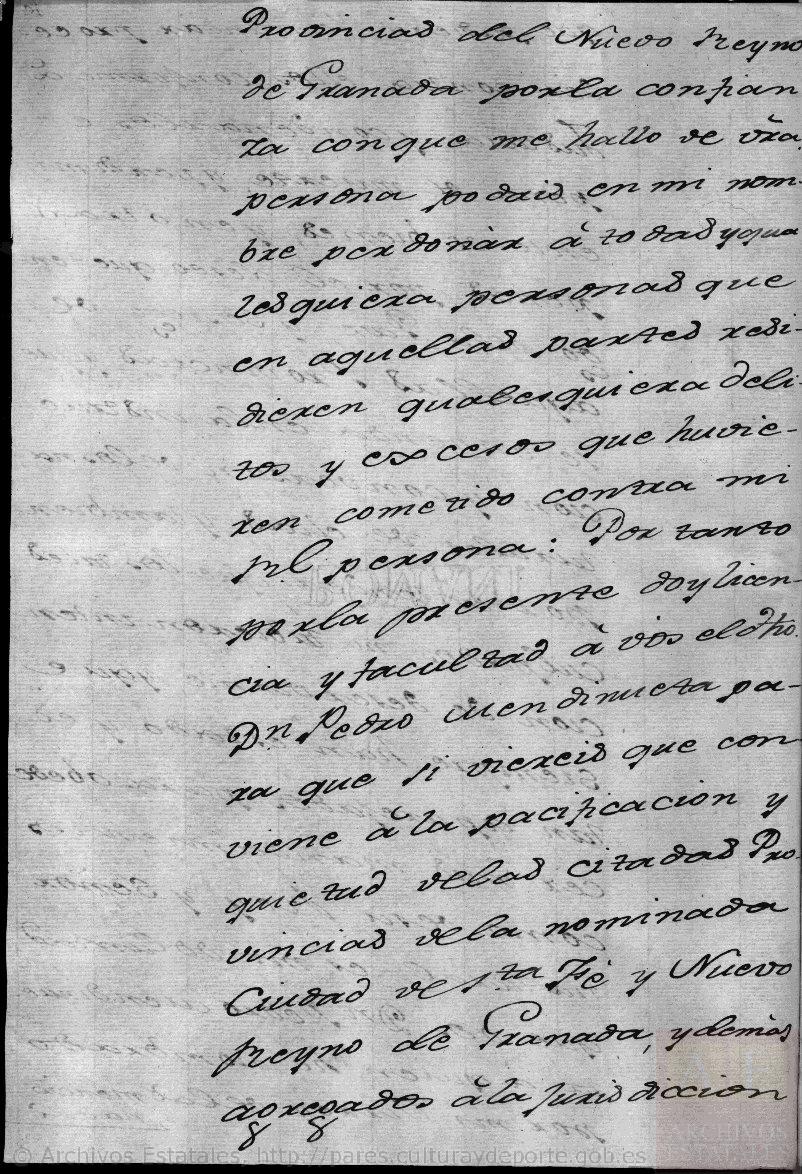 Provincias del Nuevo Reyno
de Granada porla confian
za conque me hallo de vr̃a
persona podais en mi nom-
bre perdonàr â todas y qua
lesquiera personas que
en aquellas partes resi-
dieren qualesquiera deli-
tos y excesos que huvie-
ren cometido contra mi
Rl. persona: Por tanto
porla presente doy licen-
cia y facultad â vos el dho.
Dn. Pedro Mendinueta pa-
ra que si viereis que con-
viene âla pacificacion y
quietud delas citadas Pro-
vincias dela nominada
Ciudad de Sta. Fè y Nuevo
Reyno de Granada, y demàs
agregados âla Jurisdiccion
© Archivos Estatales, http://pares.culturaydeporte.gob.es
ARCHIVOS
ESTATALES